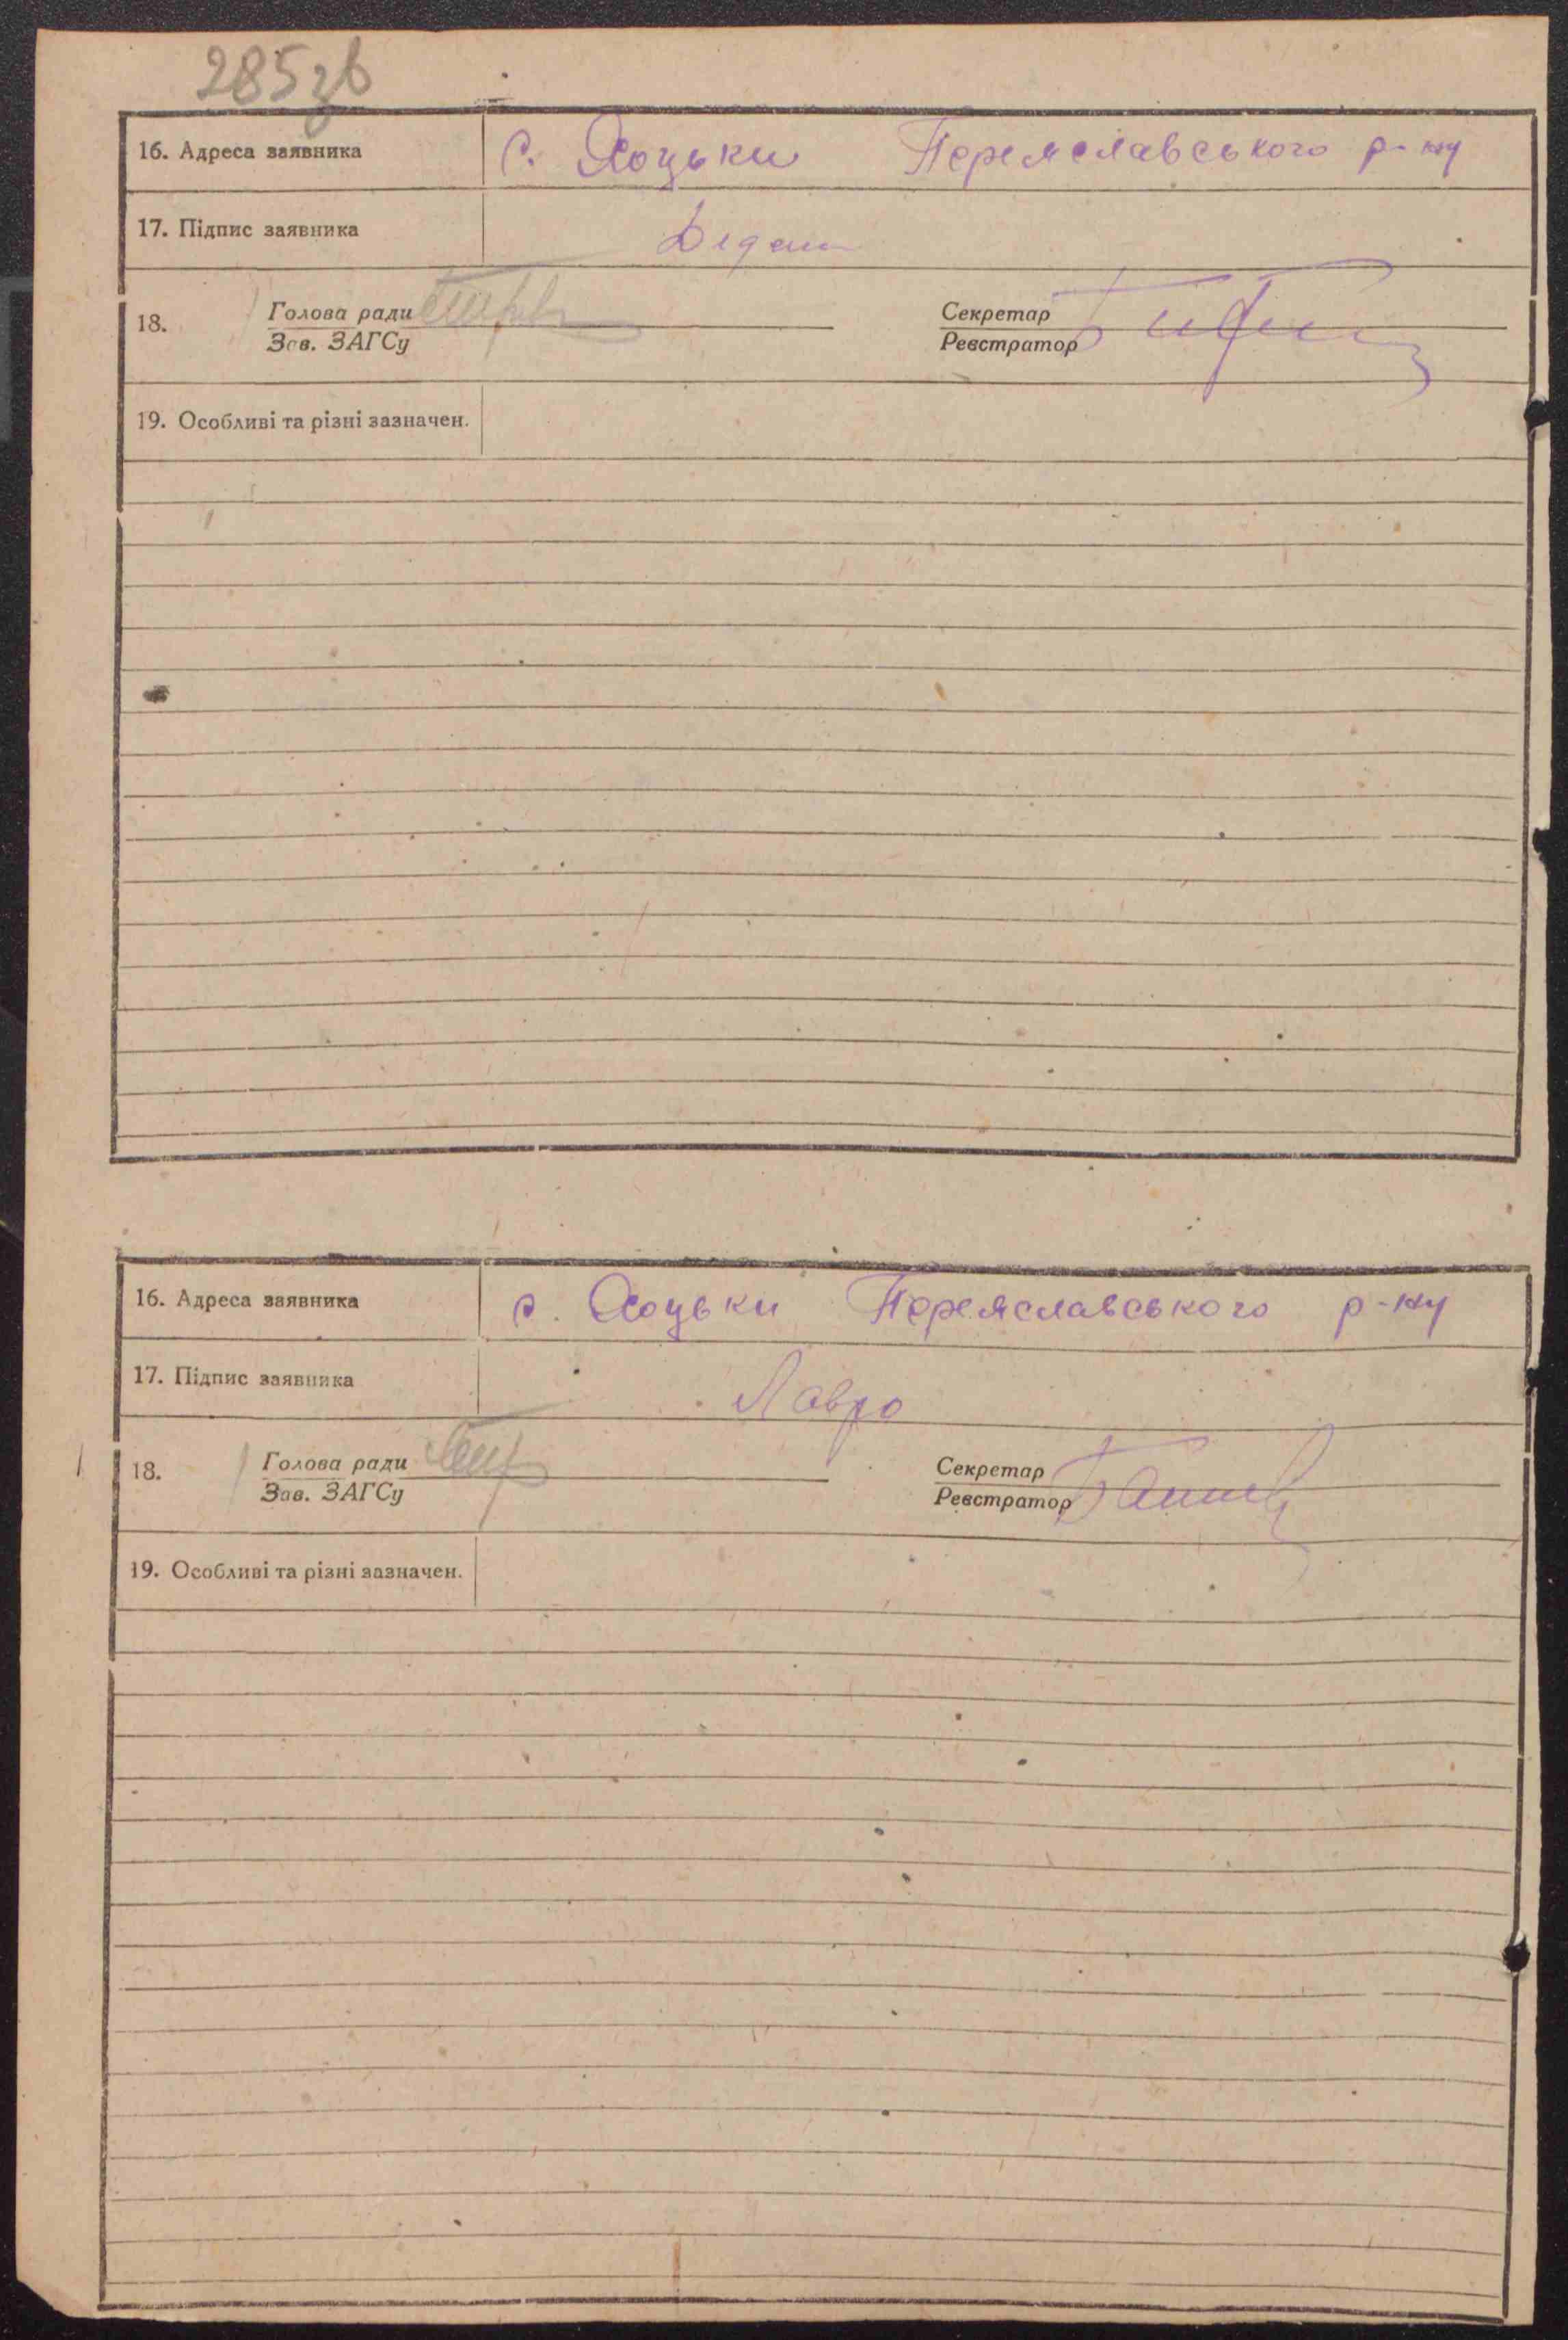 285зв
16. Адреса заявника с. Хоцьки Переяславського р-ну
17. Підпис заявника
18. Голова ради Секретар
Зав. ЗАГСу Реєстратор
19. Особливі та різні зазначен.
16. Адреса заявника с. Хоцьки Переяславського р-ну
17. Підпис заявника Лавро
18. Голова ради Секретар
Зав. ЗАГСу Реєстратор
19. Особливі та різні зазначен.